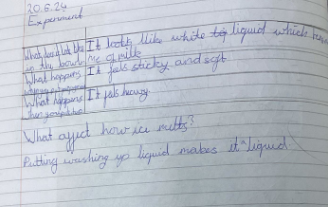 20.6.24
Experiment
What does it look like It looks like white liquid which
in the bowl me of milk
What happens It fels sticky and soft
What happens It fels heavy
What affect how ice melts?
Putting washing up liquid makes it liquid